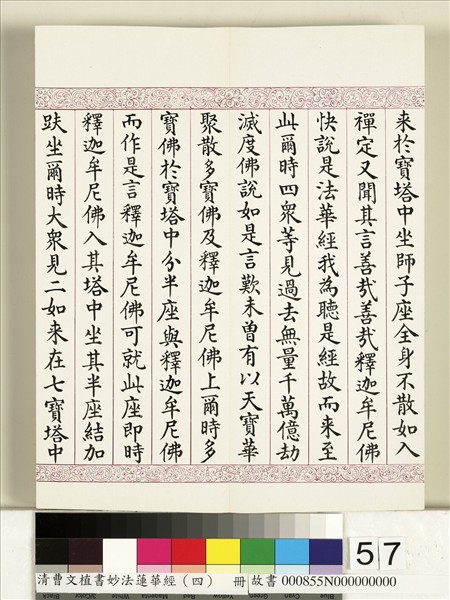 来於寶塔中坐師子座全身不散如入
禪定又聞其言善哉善哉釋迦牟尼佛
快說是法華經我為聽是經故而来至
此爾時四衆等見過去無量千萬億劫
滅度佛說如是言歎未曽有以天寶華
聚散多寶佛及釋迦牟尼佛上爾時多
寶佛於寶塔中分半座與釋迦牟尼佛
而作是言釋迦牟尼佛可就此座即時
釋迦牟尼佛入其塔中坐其半座結加
趺坐爾時大衆見二如来在七寶塔中
57
清曹文植書妙法蓮華經（四） 冊 故書 000855N000000000